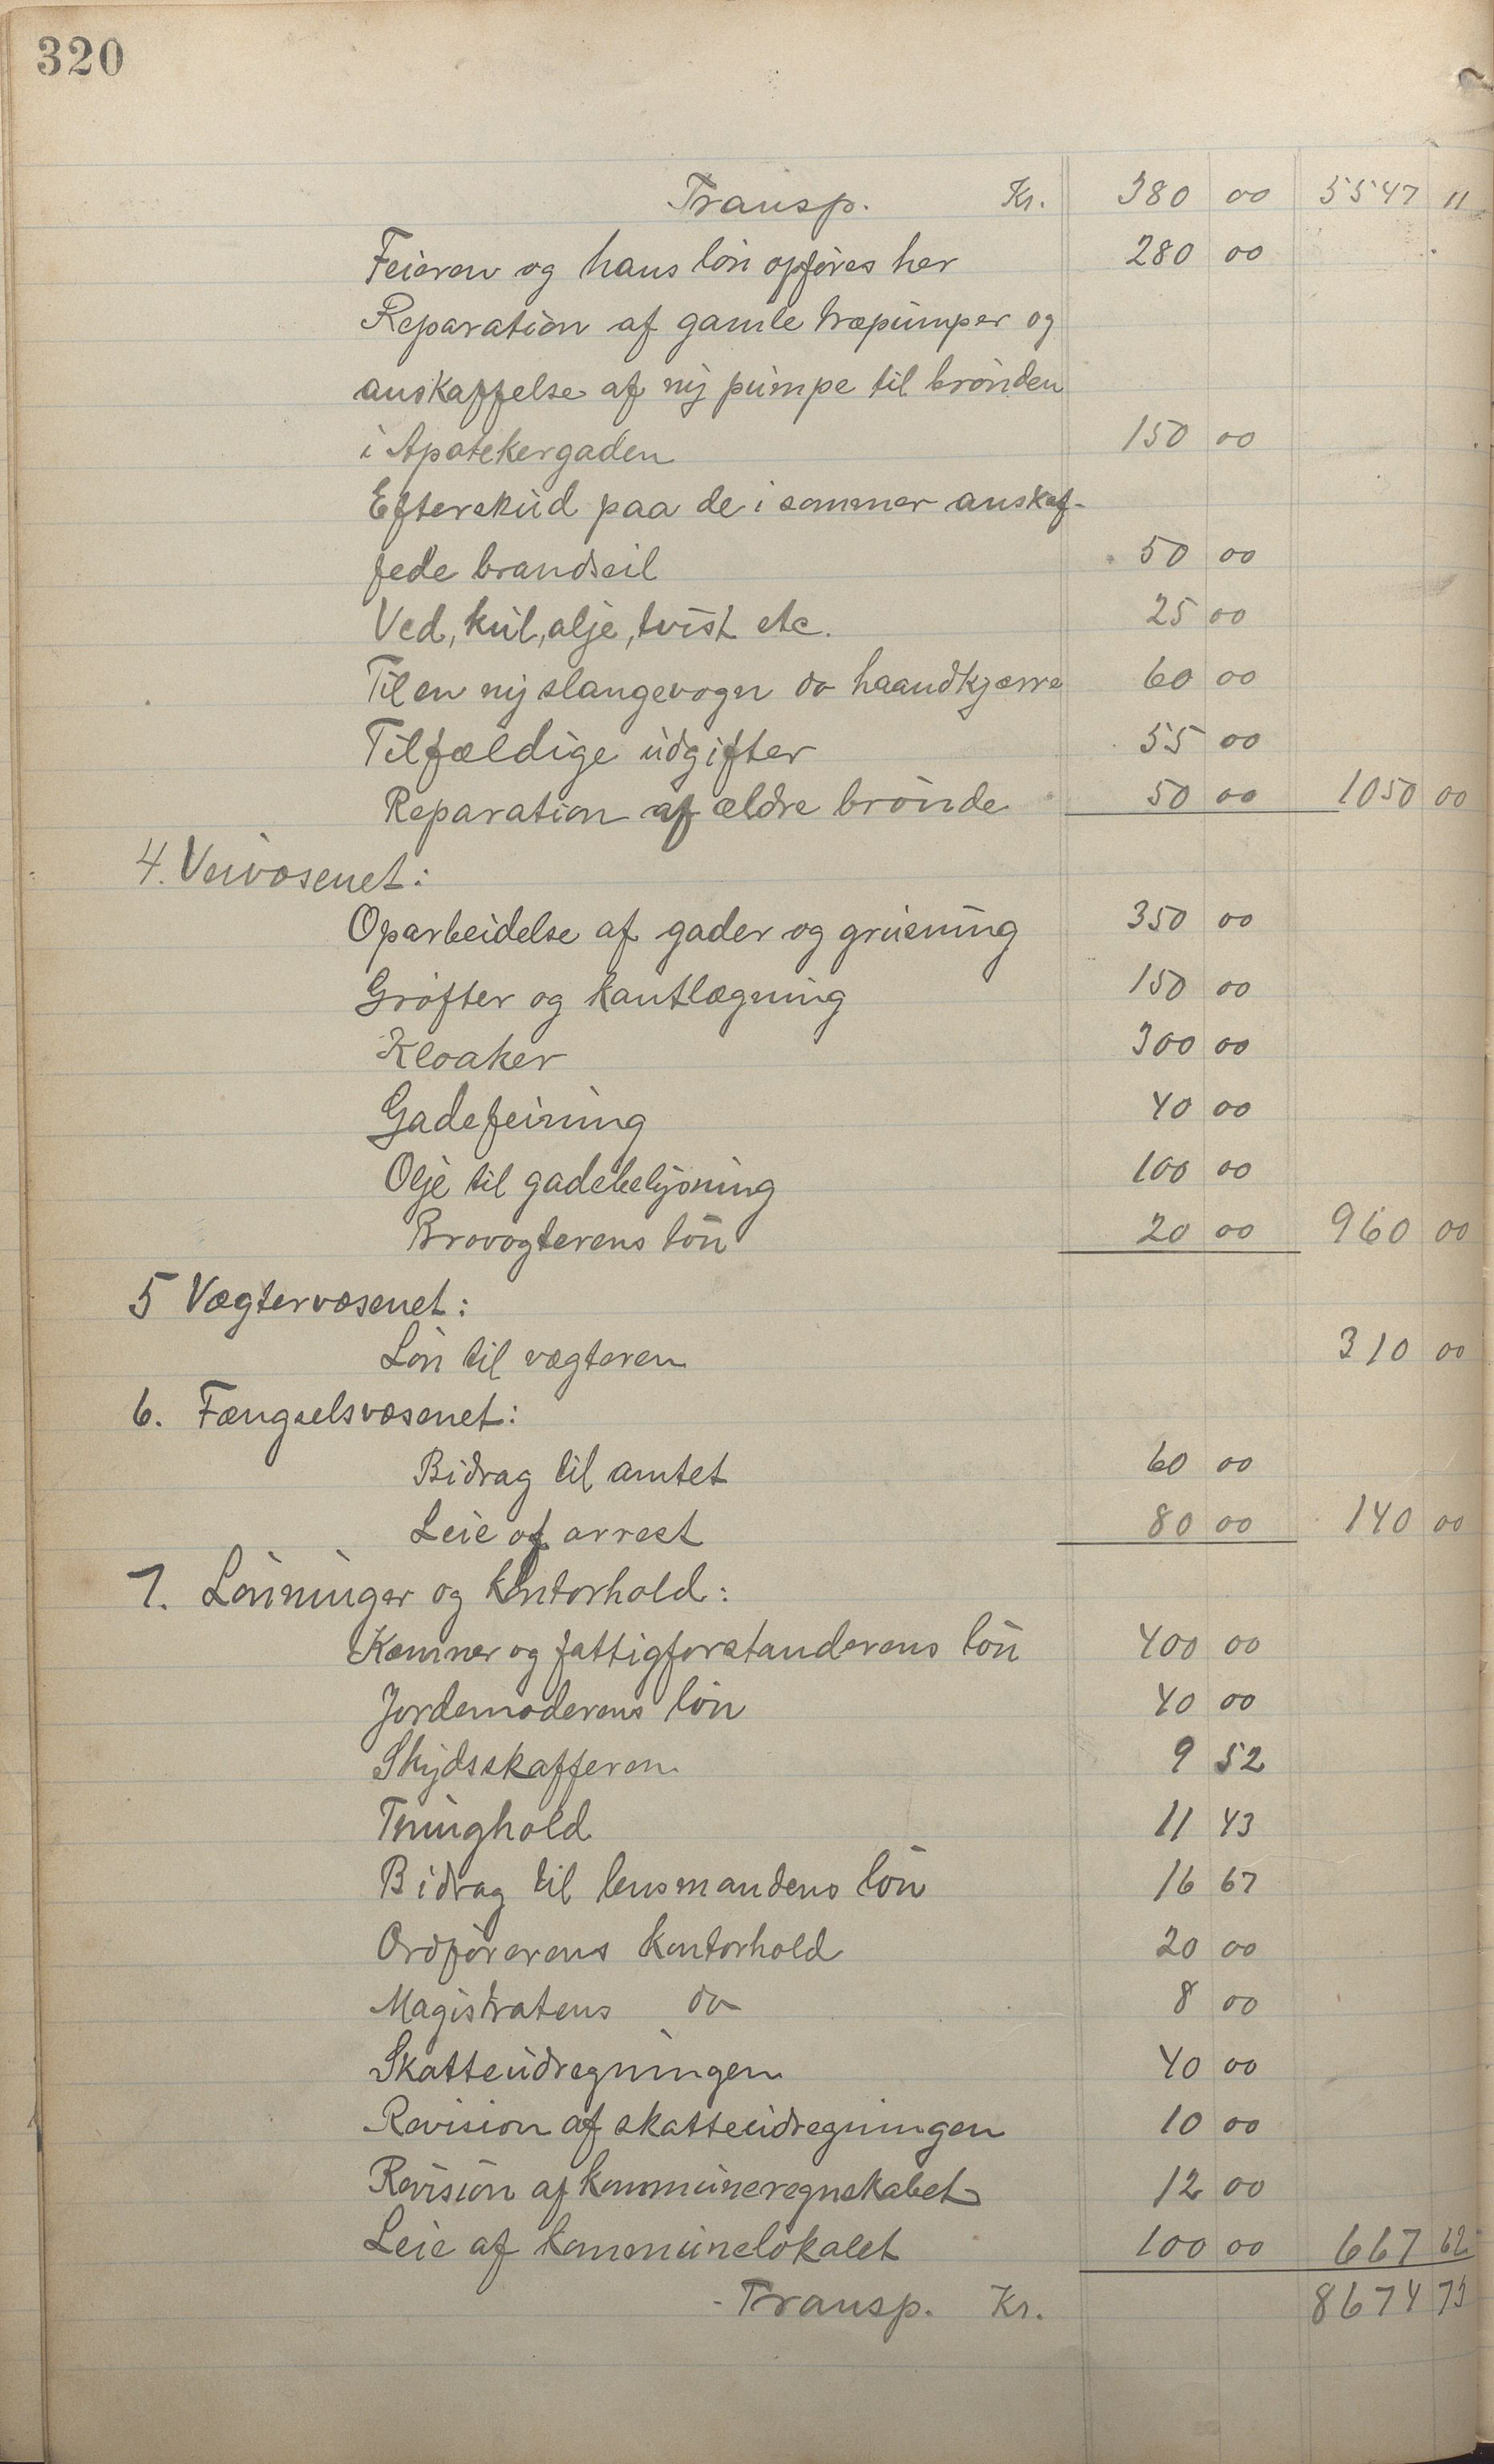 320
Transp. Kr. 380 00 5547 11
Feieren og hans løn opføres her 280 00
Reparation af gamle træpumper og
anskaffelse af ny pumpe til brønden
i Apotekergaden 150 00
Efterskud paa de i sommer anskaf-
fede brandseil 50 00
Ved, kul, olje, tvist etc. 25 00
Til en ny slangevogn do haandkjærre 60 00
Tilfældige udgifter 55 00
Reparation af ældre brønde 50 00 1050 00
4. Veivæsenet:
Oparbeidelse af gader og grusning 350 00
Grøfter og kantlægning 150 00
Kloaker 300 00
Gadefeining 40 00
Olje til gadebelysning 100 00
Brovogterens løn 20 00 960 00
5 Vægtervæsenet:
Løn til vægteren 310 00
6. Fængselsvæsenet:
Bidrag til amtet 60 00
Leie af arrest 80 00 140 00
7. Lønninger og kontorhold:
Kæmner og fattigforstanderens løn 400 00
Jordemoderens løn 40 00
Skydsskafferen 9 52
Thinghold 11 43
Bidrag til lensmandens løn 16 67
Ordførerens kontorhold 20 00
Magistratens do 8 00
Skatteudregningen 40 00
Revision af skatteudregningen 10 00
Revision af kommuneregnskabet 12 00
Leie af kommunelokalet 100 00 667 62
Transp. Kr. 8674 73